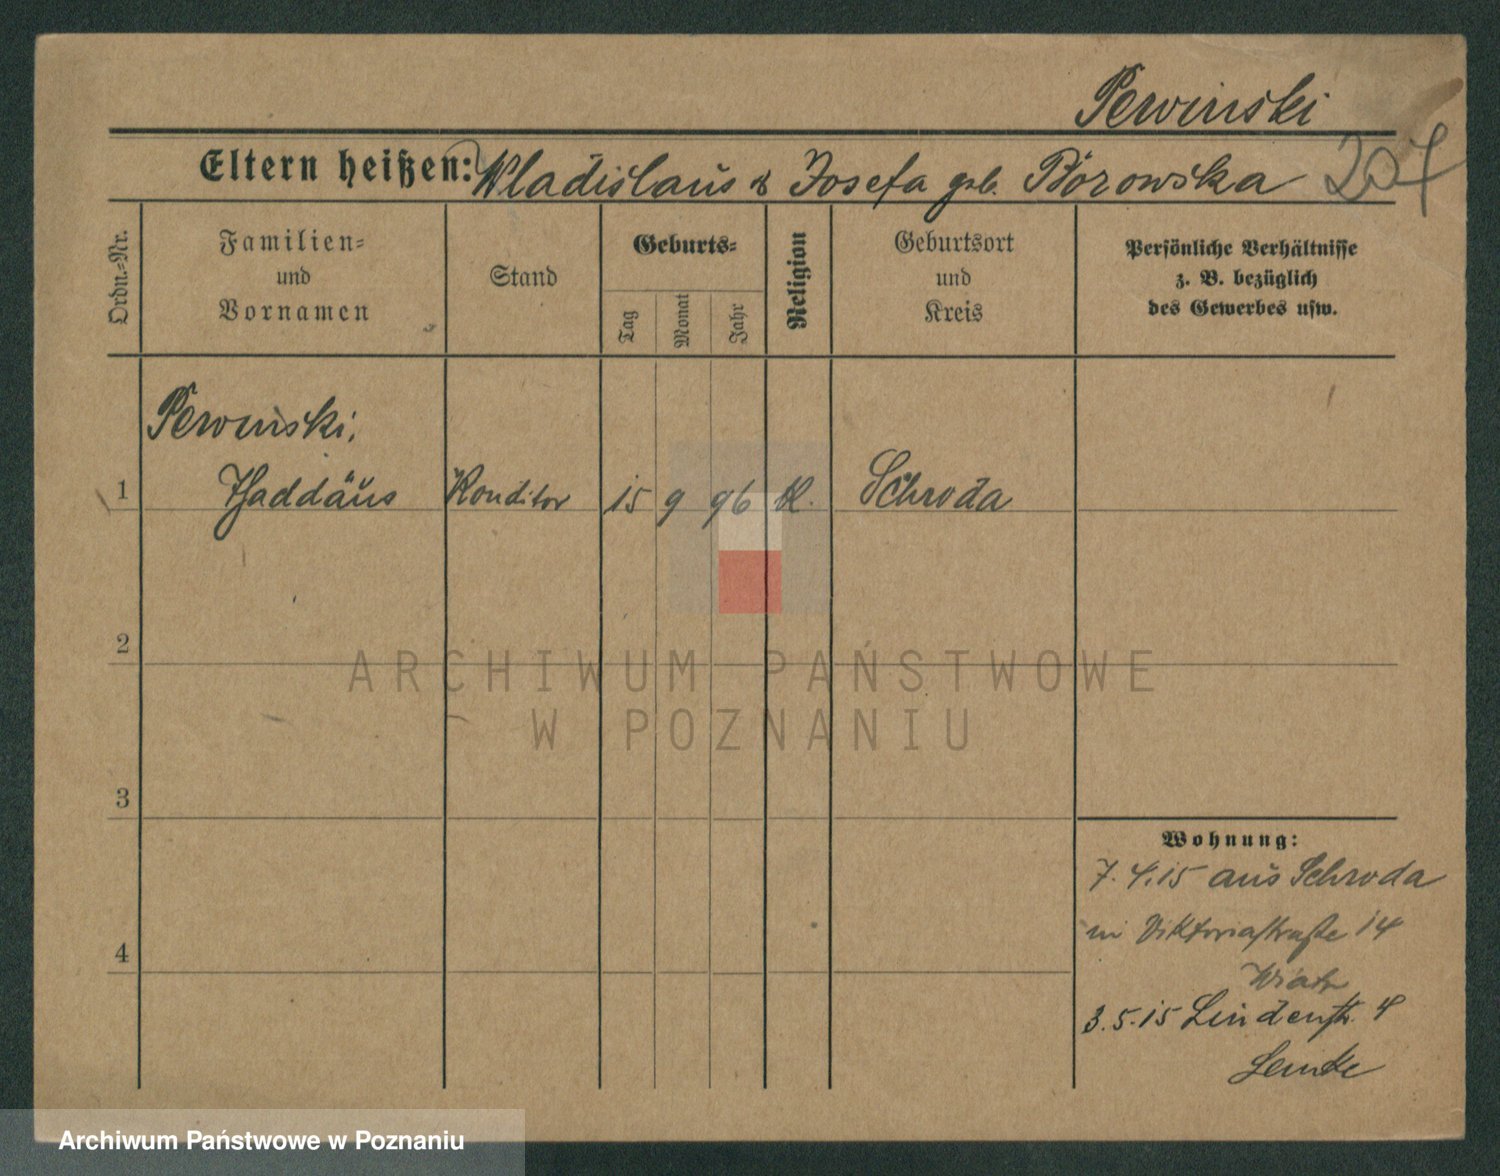 Pewinski
Eltern heißen: Wladislaus & Josefa geb. Borowska
207
Ordn.=Nr.
Familien=
und
Vornamen
Stand
Geburts=
Tag
Monat
Jahr
Religion
Geburtsort
und
Kreis
Persönliche Verhältnisse
z. B. bezüglich
des Gewerbes usw.
Pewinski,
1 Thaddäus Konditor 15 9 96 K. Schroda
2
ARCHIWUM PAŃSTWOWE
W POZNANIU
3
Wohnung:
7.4.15 aus Schroda
in Viktoriastraße 14
4
3.5.15 Lindenstr. 4
Lemke
Archiwum Państwowe w Poznaniu